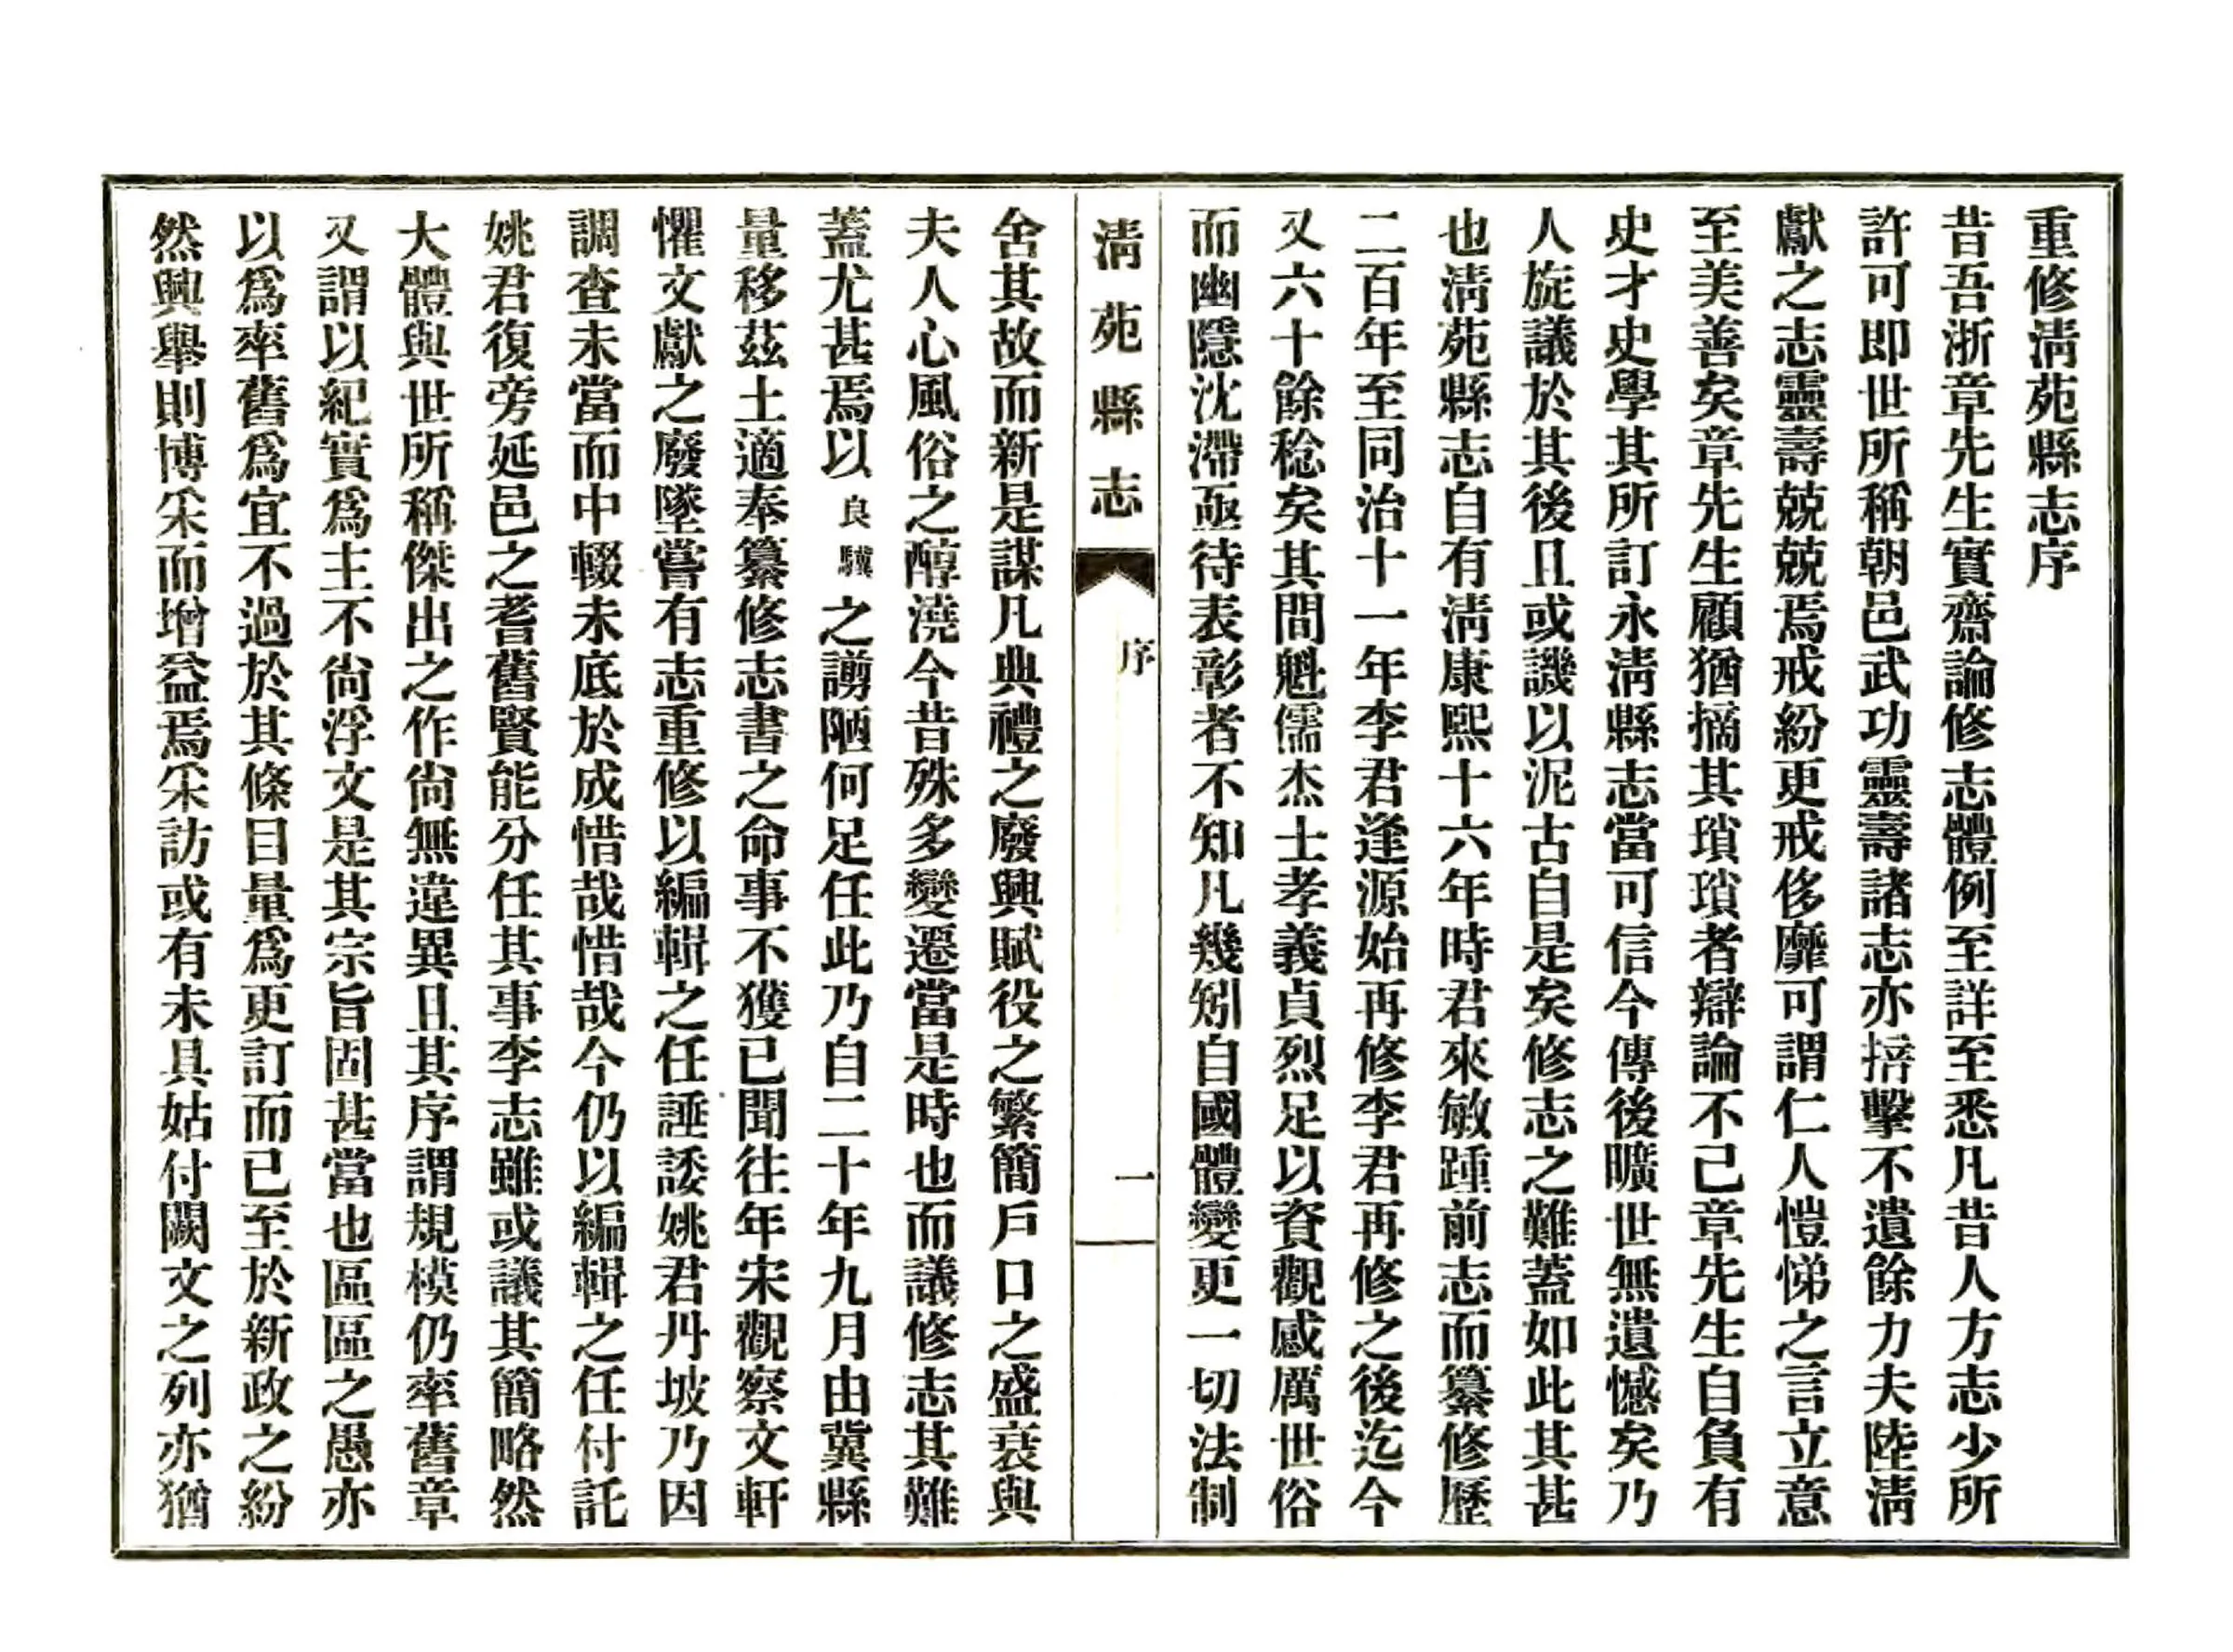 重修淸苑縣志序
昔吾浙章先生實齋論修志體例至詳至悉凡昔人方志少所
許可即世所稱朝邑武功靈壽諸志亦掊擊不遺餘力夫陸淸
獻之志靈壽兢兢焉戒紛更戒侈靡可謂仁人愷悌之言立意
至美善矣章先生顧猶摘其瑣瑣者辯論不已章先生自負有
史才史學其所訂永淸縣志當可信今傳後曠世無遺憾矣乃
人旋議於其後且或譏以泥古自是矣修志之難蓋如此其甚
也淸苑縣志自有淸康熙十六年時君來敏踵前志而纂修歷
二百年至同治十一年李君逢源始再修李君再修之後迄今
又六十餘稔矣其間魁儒杰士孝義貞烈足以資觀感厲世俗
而幽隱沈滯亟待表彰者不知凡幾矧自國體變更一切法制
淸苑縣志
序
一
舍其故而新是謀凡典禮之廢興賦役之繁簡戶口之盛衰與
夫人心風俗之醇澆今昔殊多變遷當是時也而議修志其難
蓋尤甚焉以良驥之謭陋何足任此乃自二十年九月由冀縣
量移茲土適奉纂修志書之命事不獲已聞往年宋觀察文軒
懼文獻之廢墜嘗有志重修以編輯之任諈諉姚君丹坡乃因
調查未當而中輟未底於成惜哉惜哉今仍以編輯之任付託
姚君復旁延邑之耆舊賢能分任其事李志雖或議其簡略然
大體與世所稱傑出之作尙無違異且其序謂規模仍率舊章
又謂以紀實爲主不尙浮文是其宗旨固甚當也區區之愚亦
以爲率舊爲宜不過於其條目量爲更訂而已至於新政之紛
然興舉則博采而增益焉采訪或有未具姑付闕文之列亦猶